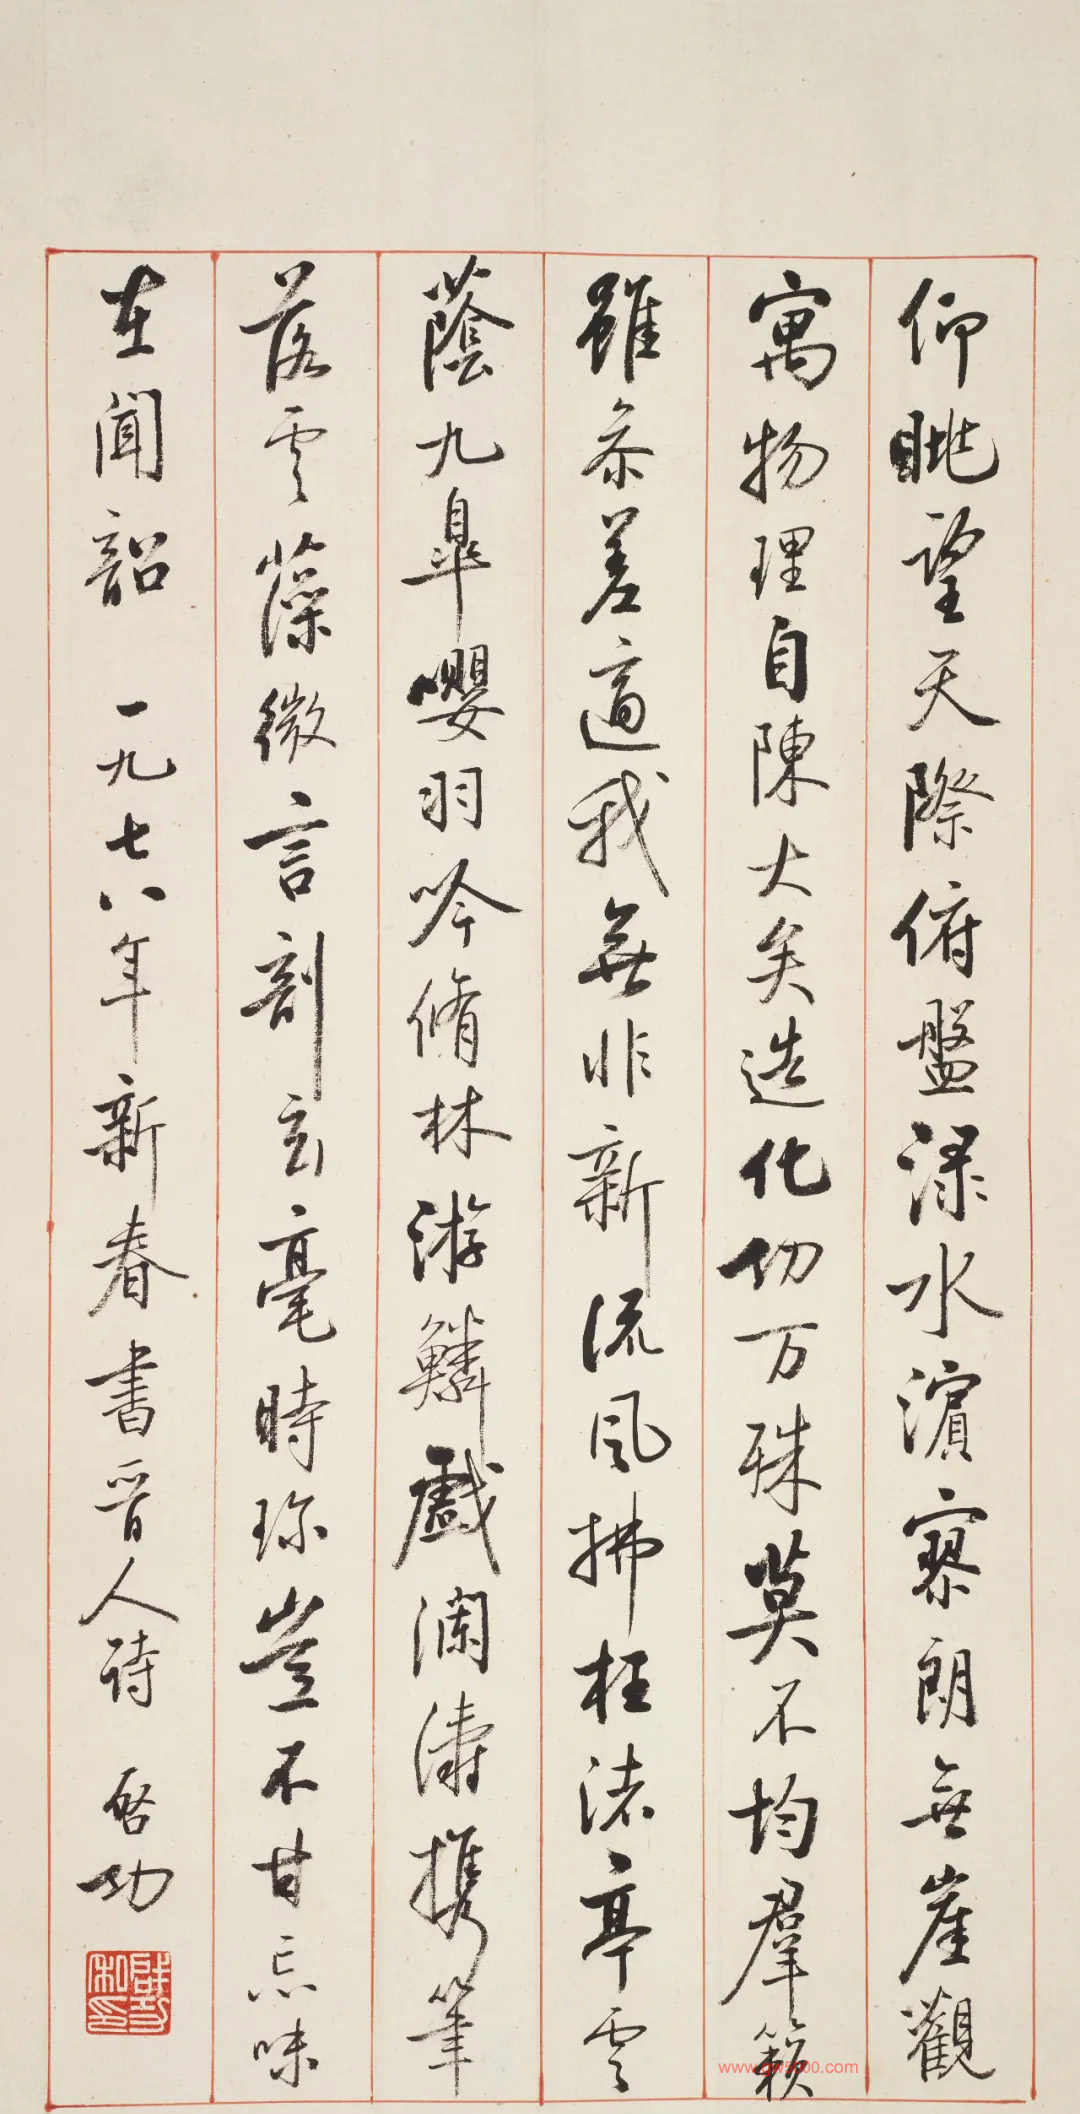 仰眺望天際俯盤淥水濵寥朗無崖觀
寓物理自陳大矣造化功万殊莫不均羣籟
雖叅差適我無非新流風拂枉渚亭雲
蔭九臯嚶羽吟脩林游鱗戲瀾濤携筆
落雲藻微言剖玄毫時珍豈不甘忘味
在聞韶 一九七八年新春書晋人詩 啓功